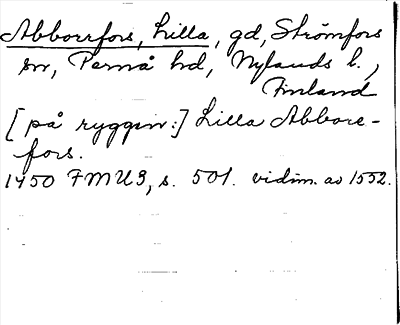 Abborrfors, Lilla, gd, Strömfors
sn, Pernå hd, Nylands l.,
Finland
[på ryggen:] Lilla Abbore-
fors.
1450 FMU3, s. 501. vidim. av 1552.